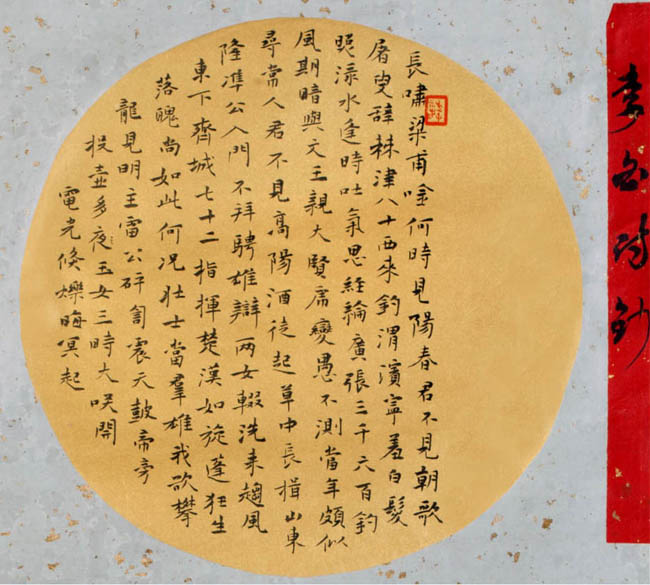 李白詩鈔
長嘯梁甫吟何時見陽春君不見朝歌
屠叟辭棘津八十西來釣渭濱寧羞白髮
照淥水逢時吐氣思經綸廣張三千六百釣
風期暗與文王親大賢虎變愚不測當年頗似
尋常人君不見高陽酒徒起草中長揖山東
隆準公入門不拜騁雄辯兩女輟洗來趨風
東下齊城七十二指揮楚漢如旋蓬狂生
落魄尚如此何況壯士當羣雄我欲攀
龍見明主雷公砰訇震天鼓帝旁
投壺多夜玉女三時大咲開
電光倐爍晦冥起